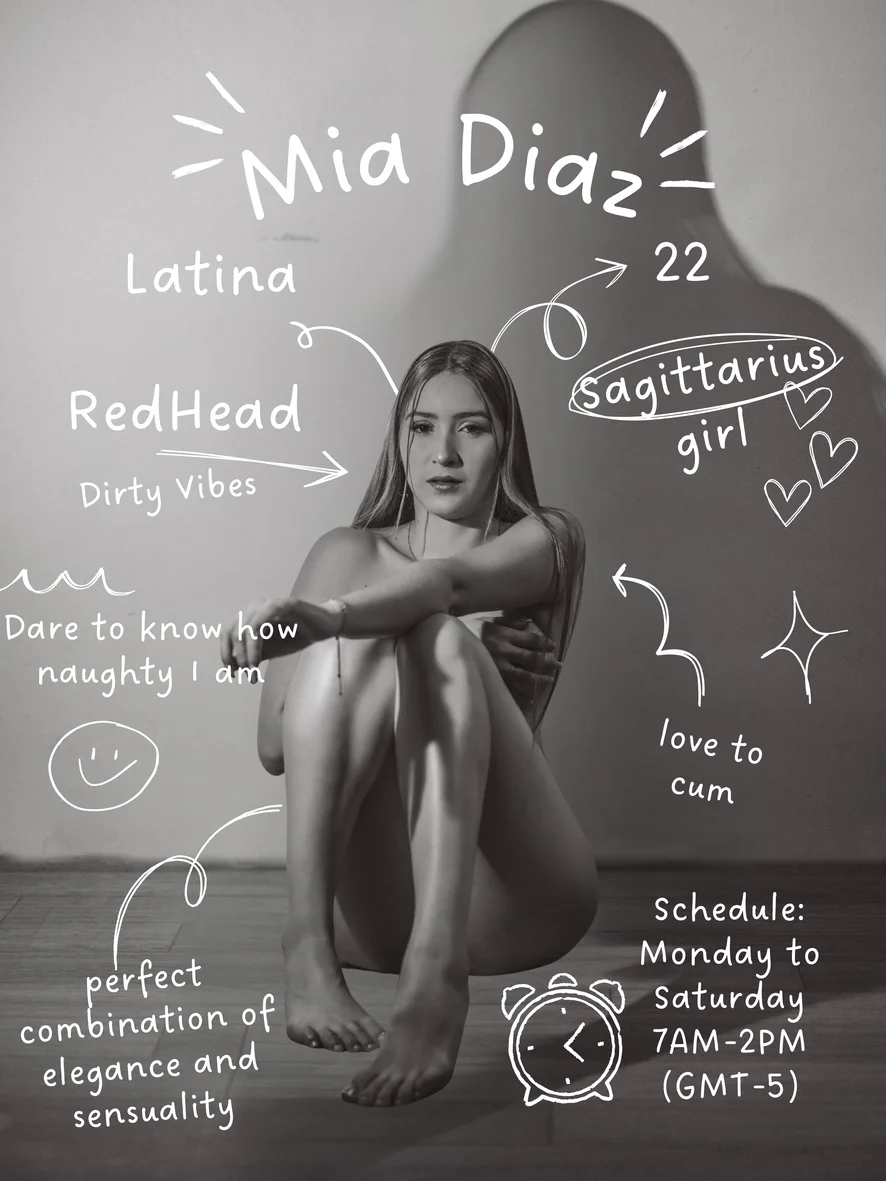 Mia Diaz
Latina
22
Sagittarius
girl
RedHead
Dirty Vibes
Dare to know how
naughty I am
love to
cum
perfect
combination of
elegance and
sensuality
Schedule:
Monday to
Saturday
7AM-2PM
(GMT-5)